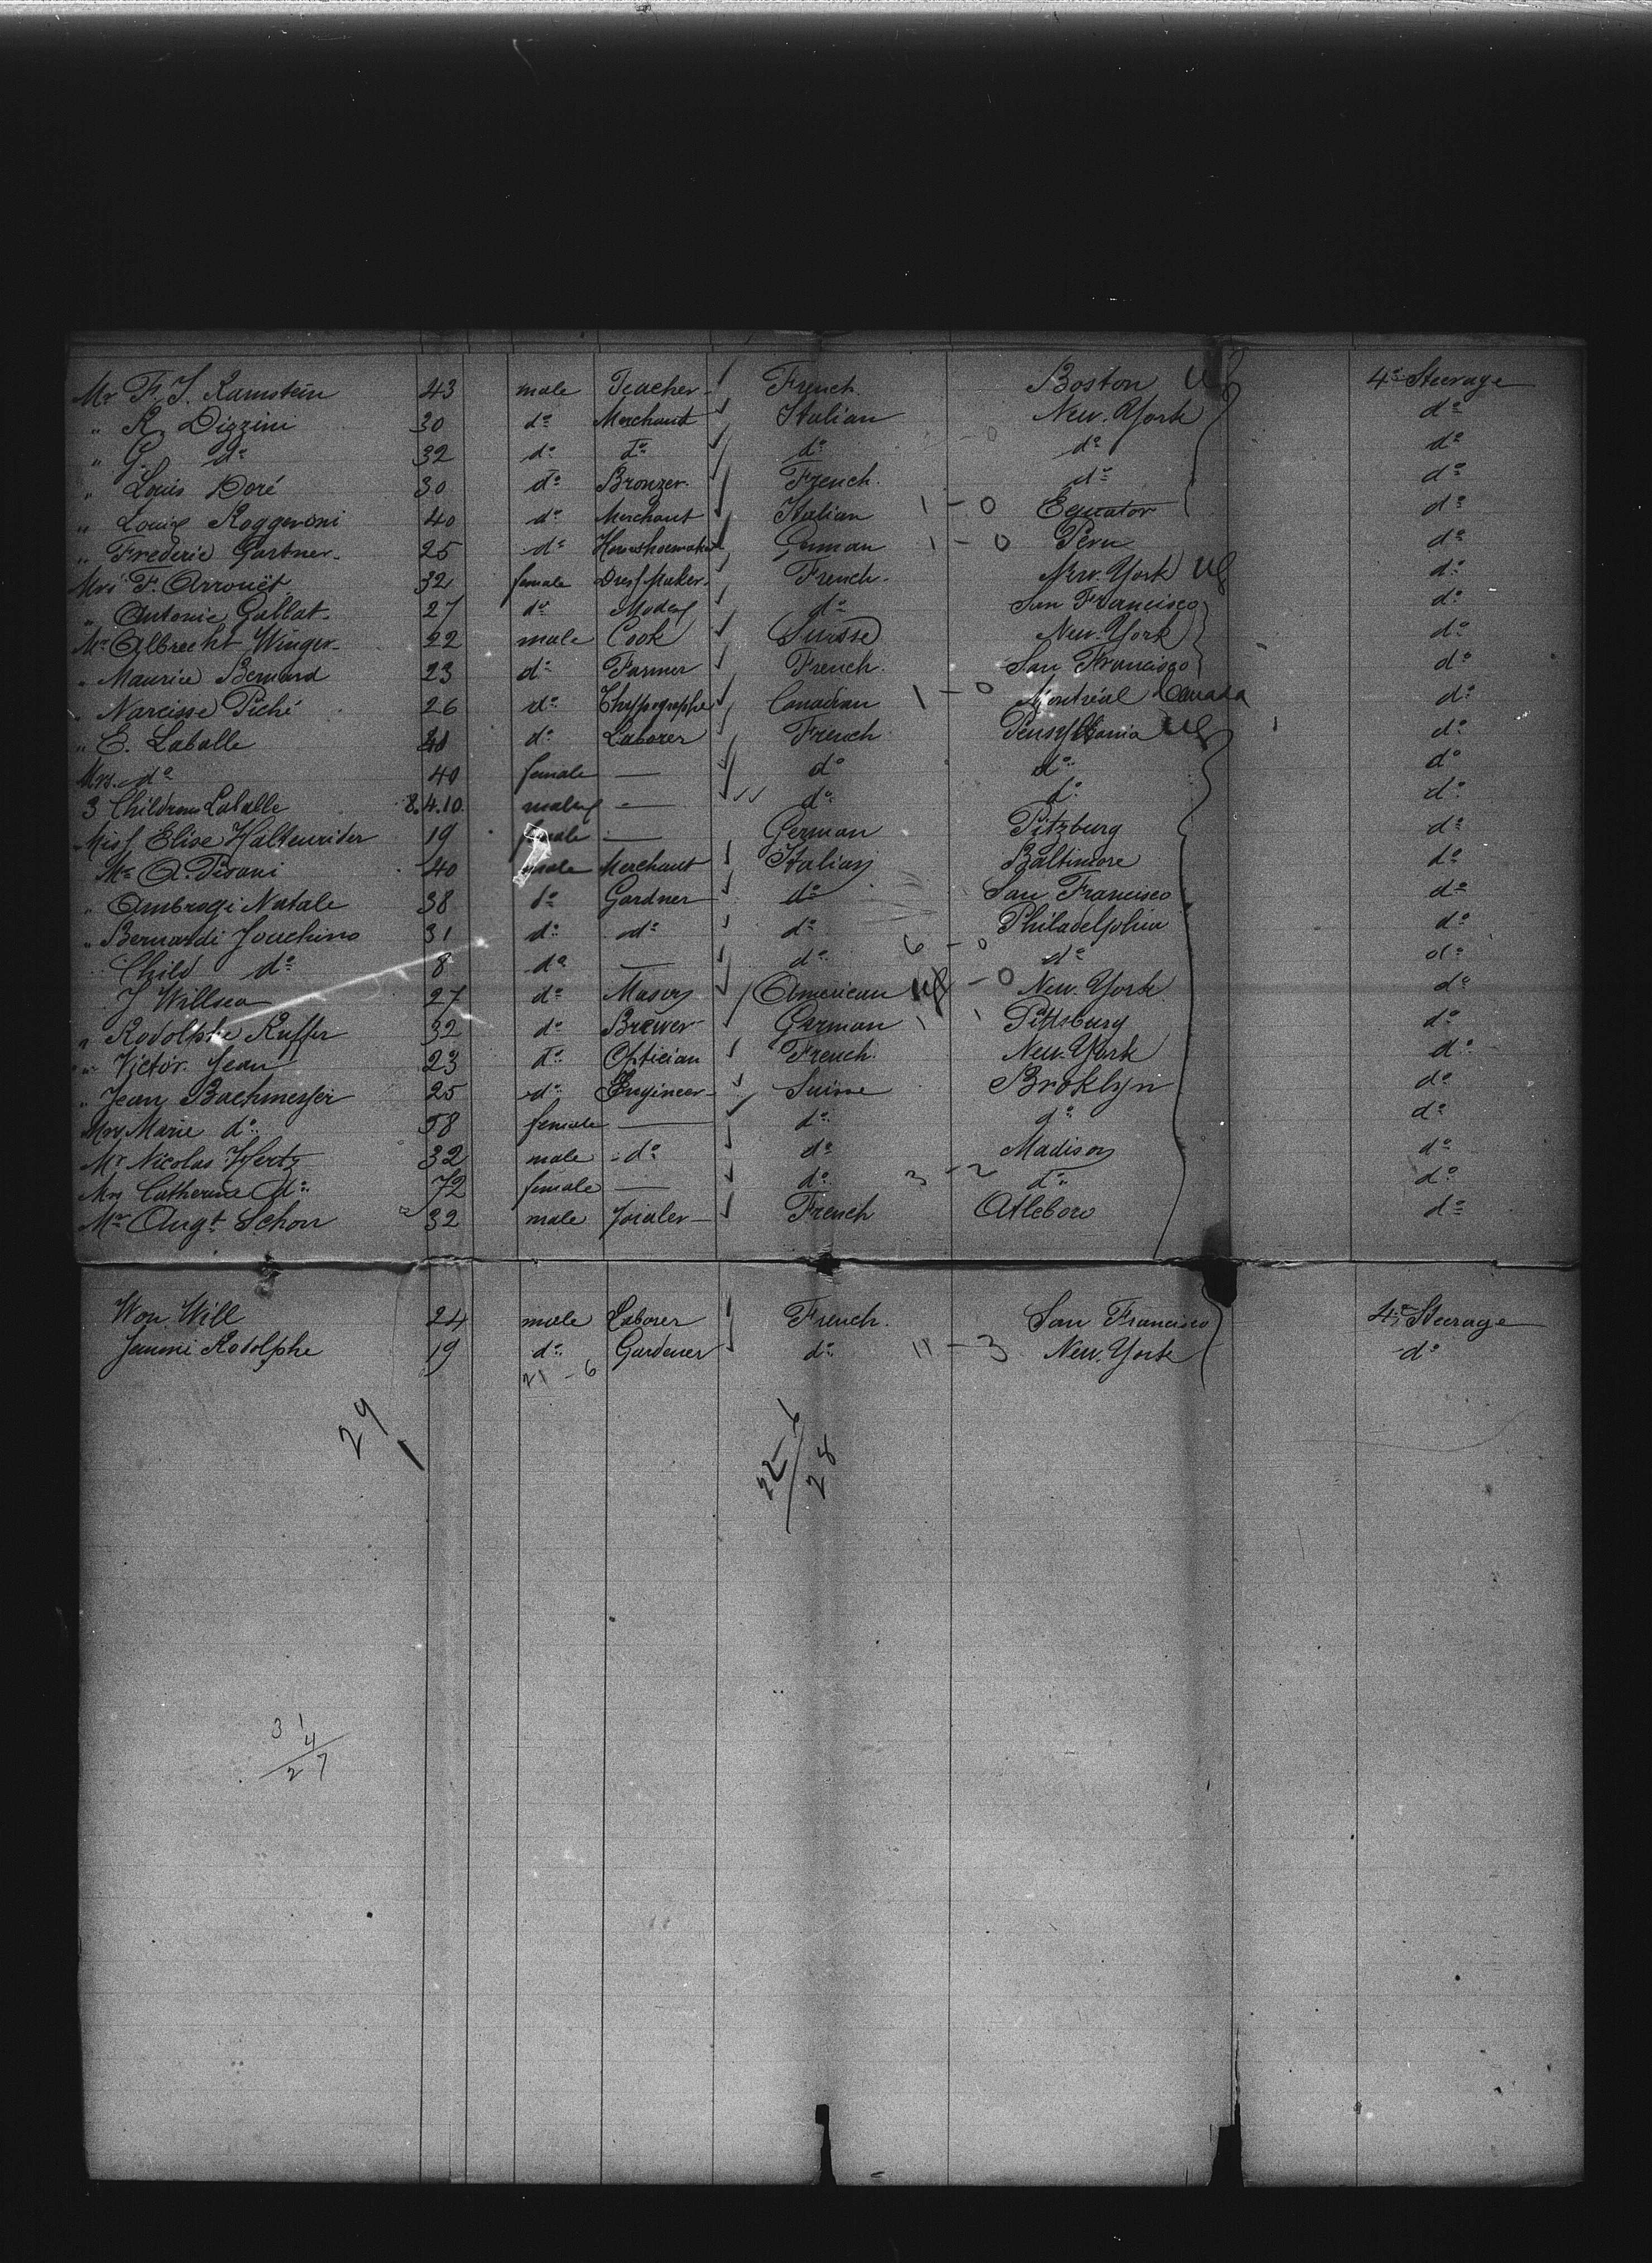 Mr F. J. Ramstein 43 male Teacher French Boston US 4e Steerage
" R. Dizzini 30 do Merchant Italian New-York do
" G. do 32 do do do do do
" Louis Doré 30 do Bronzer French do do
" Louis Roggeroni 40 do Merchant Italian 1 - 0 Equator do
" Frederic Gartner 25 do German 1 - 0 Peru do
Mrs F. Arrouët 32 female Dress Maker French New-York US do
" Antonie Gallat 27 do Modes do San Francisco do
Mr Albrecht Winger 22 male Cook Suisse New-York do
" Maurice Bernard 23 do Farmer French San Francisco do
" Narcisse Piché 26 do Thyppographe Canadian 1 - 0 Montréal Canada do
" E. Laballe do Laborer French US do
Mrs. do 40 female — do do do
3 Childrens Laballe 8.4.10. males — do do do
Miss Elise Haltenrider 19 female — German Pitzburg do
Mr A. Pisani 40 male Merchant Italian Baltimore do
" Ambrogi Natale 38 do Gardner do San Francisco do
" Bernardi Jouchino 31 do do do Philadelphia do
Child do 8 do — do 6 - 0 do do
J Willsea 27 do Mason American US - 0 New-York do
" Rodolphe Ruffer 32 do Brewer German 1 1 Pittsburg do
" Victor Jean 23 do Optician French New-York do
" Jean Bachmeyer 25 do Engineer Suisse Broklyn do
Mrs Marie do 58 female — do do do
Mr Nicolas Hertz 32 male do do Madison do
Mrs Catherine do 72 female — do 3 - 2 do do
Mr Augt Schon 32 male Joialer French Atleboro do
Won Will 24 male Laborer French San Francisco 4e Steerage
Jeunni Rodolphe 19 do Gardener do 11 - 3 New-York do
21 - 6
29
22 6
28
31
4
27